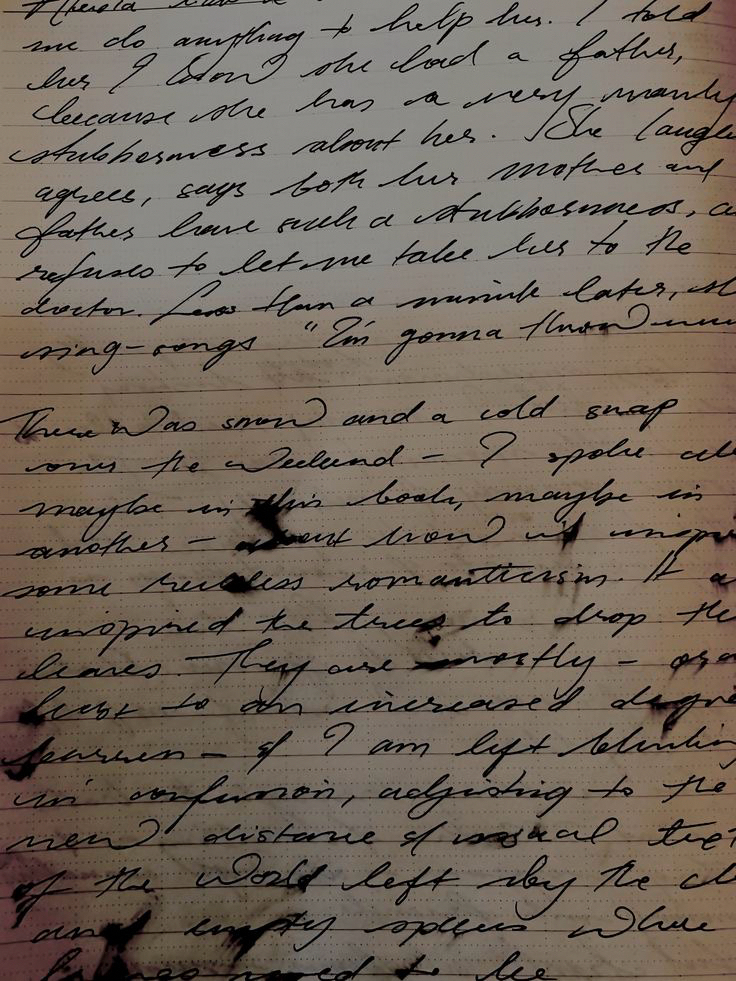 me do anything to help her. I told
her I know she had a father,
because she has a very manly
stubbornness about her. She laughs
agrees, says both her mother and
father have such a stubbornness, a
refuses to let me take her to the
doctor. Less than a minute later, sh
sing-songs "I'm gonna throw
There was snow and a cold snap
over the weekend - I spoke
maybe in this book, maybe in
another - about how it inspi
some reckless romanticism. It a
inspired the trees to drop the
leaves. They are mostly - or a
least to an increased degre
barren - & I am left blinking
in confusion, adjusting to the
new distance & visual text
of the world left by the
and empty spaces where
used to be